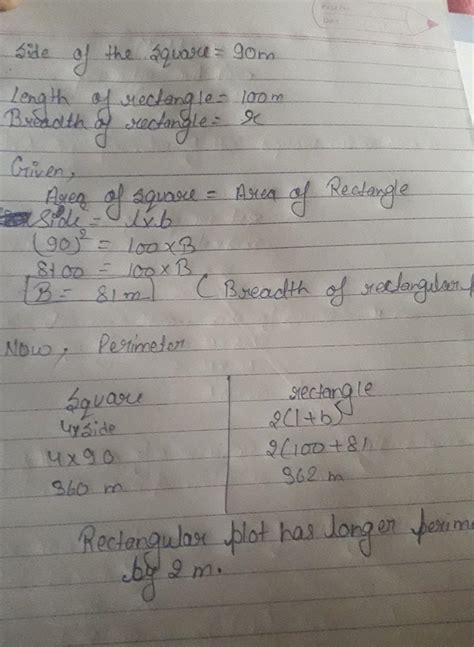 Side of the square = 90m
Length of rectangle = 100m
Breadth of rectangle = x
Given,
Area of square = Area of Rectangle
Side = l x b
(90)² = 100 x B
8100 = 100 x B
B = 81 m (Breadth of rectangular
Now, Perimeter
Square rectangle
4xSide 2(l+b)
4x90 2(100+81
360 m 362 m
Rectangular plot has longer perim
by 2 m.